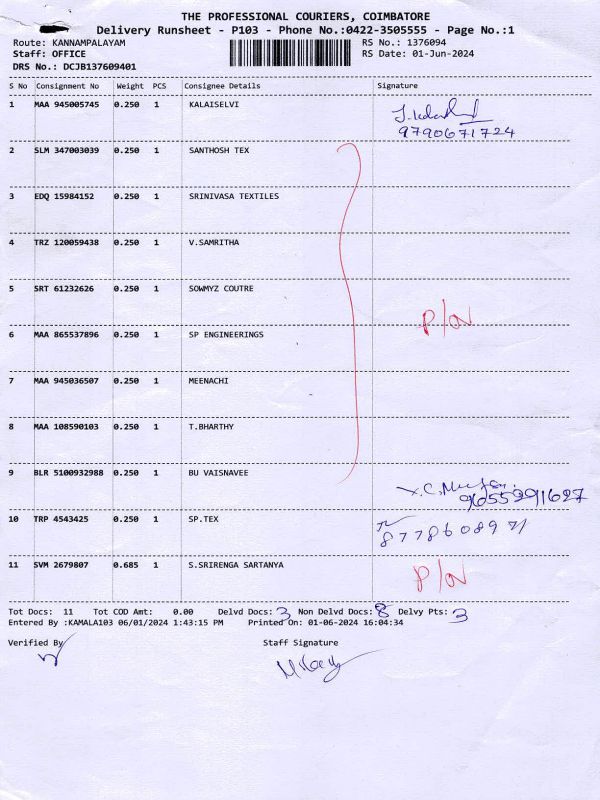 THE PROFESSIONAL COURIERS, COIMBATORE
Delivery Runsheet - P103 - Phone No.:0422-3505555 - Page No.:1
Route: KANNAMPALAYAM RS No.: 1376094
Staff: OFFICE RS Date: 01-Jun-2024
DRS No.: DCJB137609401
S No Consignment No Weight PCS Consignee Details Signature
1 MAA 945005745 0.250 1 KALAISELVI
9790671724
2 SLM 347003039 0.250 1 SANTHOSH TEX
3 EDQ 15984152 0.250 1 SRINIVASA TEXTILES
4 TRZ 120059438 0.250 1 V.SAMRITHA
5 SRT 61232626 0.250 1 SOWMYZ COUTRE
P/ov
6 MAA 865537896 0.250 1 SP ENGINEERINGS
7 MAA 945036507 0.250 1 MEENACHI
8 MAA 108590103 0.250 1 T.BHARTHY
9 BLR 5100932988 0.250 1 BU VAISNAVEE
9655291627
10 TRP 4543425 0.250 1 SP.TEX
8778608971
11 SVM 2679807 0.685 1 S.SRIRENGA SARTANYA
P/ov
Tot Docs: 11 Tot COD Amt: 0.00 Delvd Docs: 3 Non Delvd Docs: 8 Delvy Pts: 3
Entered By :KAMALA103 06/01/2024 1:43:15 PM Printed On: 01-06-2024 16:04:34
Verified By Staff Signature